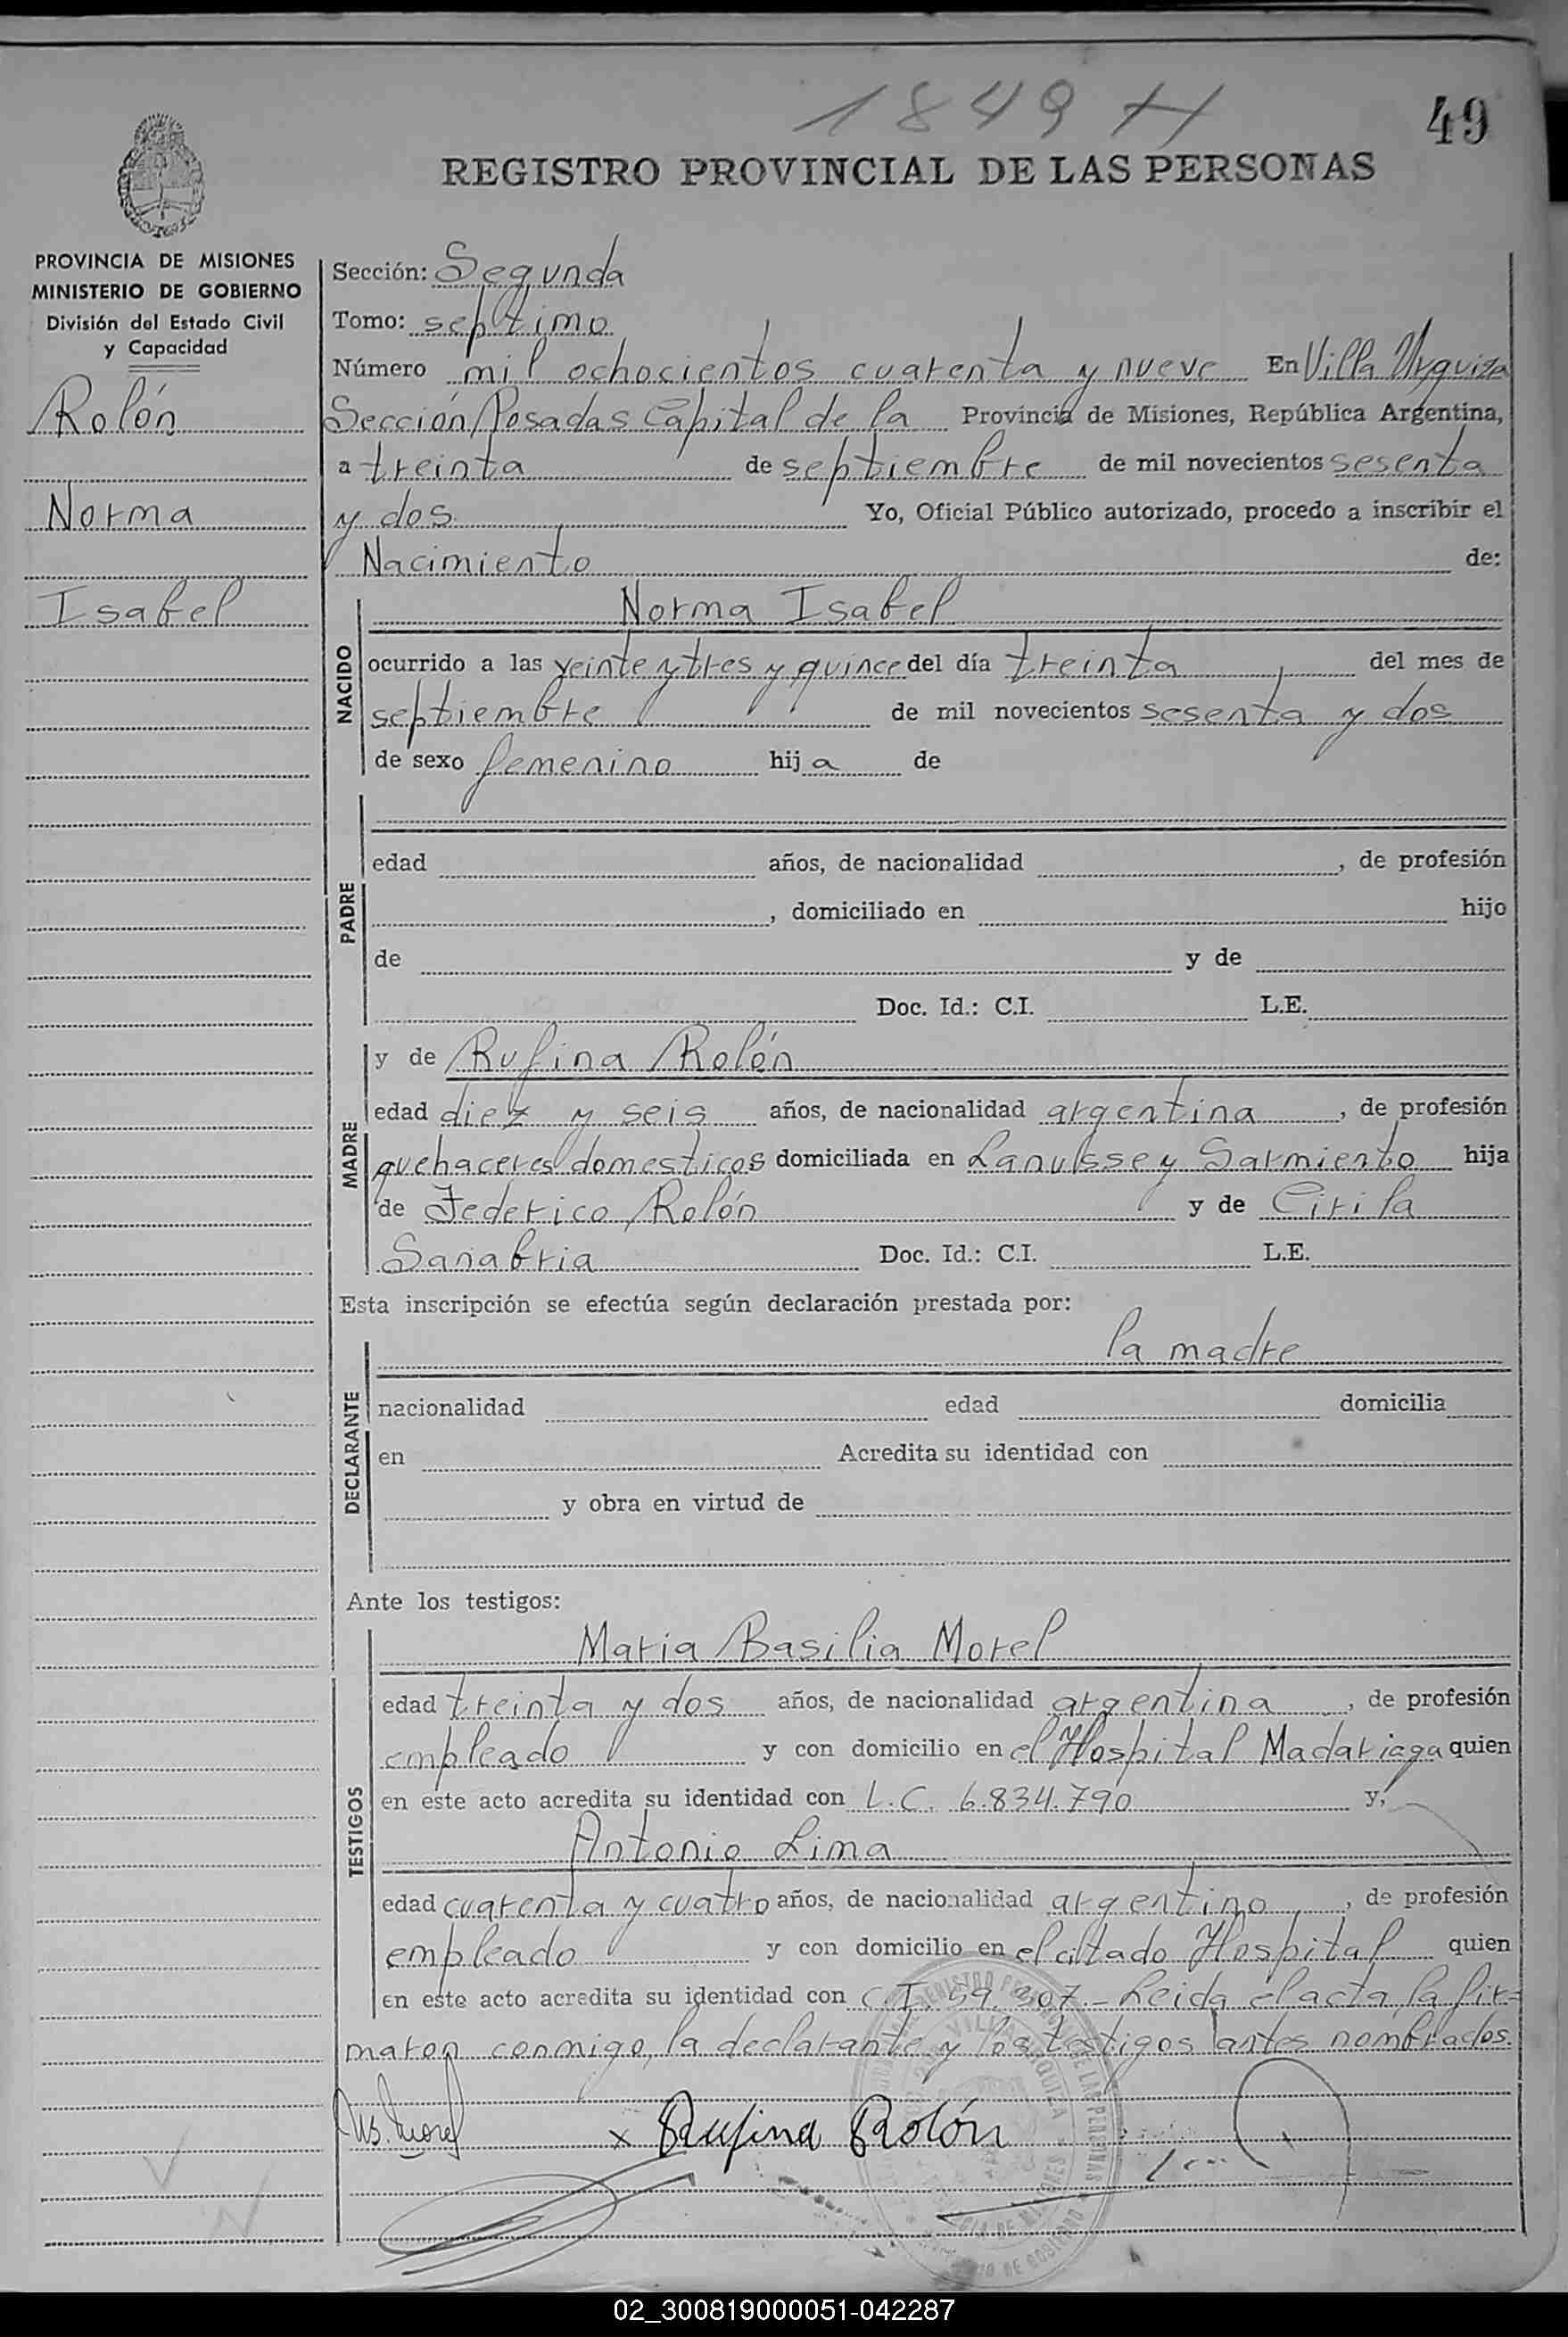 1849 H
49
REGISTRO PROVINCIAL DE LAS PERSONAS
PROVINCIA DE MISIONES
MINISTERIO DE GOBIERNO
División del Estado Civil
y Capacidad
Rolón
Norma
Isabel
Sección: Segunda
Tomo: septimo
Número mil ochocientos cuarenta y nueve En Villa Urquiza
Sección Posadas Capital de la Provincia de Misiones, República Argentina,
a treinta de septiembre de mil novecientos sesenta
y dos Yo, Oficial Público autorizado, procedo a inscribir el
Nacimiento de:
NACIDO
Norma Isabel
ocurrido a las veinte y tres y quince del día treinta del mes de
septiembre de mil novecientos sesenta y dos
de sexo femenino hija de
PADRE
edad años, de nacionalidad , de profesión
, domiciliado en hijo
de y de
Doc. Id.: C.I. L.E.
MADRE
y de Rufina Rolón
edad diez y seis años, de nacionalidad argentina , de profesión
quehaceres domesticos domiciliada en Lanusse y Sarmiento hija
de Federico Rolón y de Cirila
Sanabria Doc. Id.: C.I. L.E.
Esta inscripción se efectúa según declaración prestada por:
DECLARANTE
la madre
nacionalidad edad domicilia
en Acredita su identidad con
y obra en virtud de
Ante los testigos:
TESTIGOS
Maria Basilia Morel
edad treinta y dos años, de nacionalidad argentina , de profesión
empleado y con domicilio en el Hospital Madariaga quien
en este acto acredita su identidad con L.C. 6.834.790 y,
Antonio Lima
edad cuarenta y cuatro años, de nacionalidad argentino , de profesión
empleado y con domicilio en el citado Hospital quien
en este acto acredita su identidad con C.I. 207.- Leida el acta, la fir=
maron conmigo, la declarante y los testigos antes nombrados.
x Rufina Rolón
02_300819000051-042287